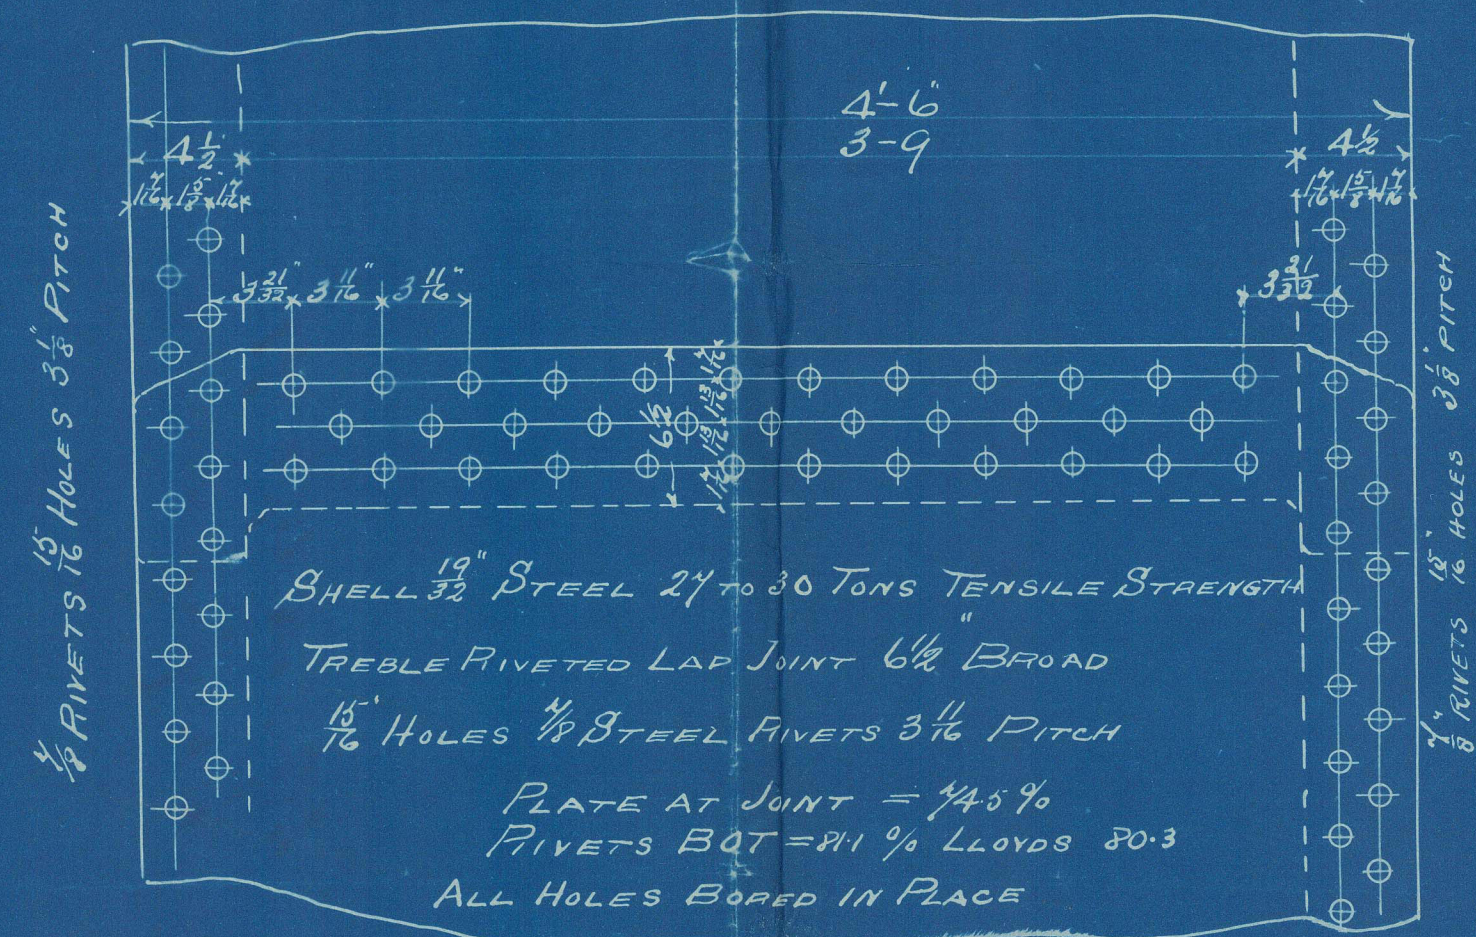 4'-6"
3-9
4 1/2
4 1/2
1 7/16 1 5/8 1 7/16
1 7/16 1 5/8 1 7/16
3 21/32 3 11/16" 3 11/16"
3 21/32
6 1/2
1 7/16 1 13/16 1 13/16 1 7/16
7/8 RIVETS 15/16 HOLES 3 1/8" PITCH
7/8" RIVETS 15/16" HOLES 3 1/8" PITCH
SHELL 19/32" STEEL 27 TO 30 TONS TENSILE STRENGTH
TREBLE RIVETED LAP JOINT 6 1/2" BROAD
15/16" HOLES 7/8 STEEL RIVETS 3 11/16 PITCH
PLATE AT JOINT = 74.5 %
RIVETS BOT = 81.1 % LLOYDS 80.3
ALL HOLES BORED IN PLACE